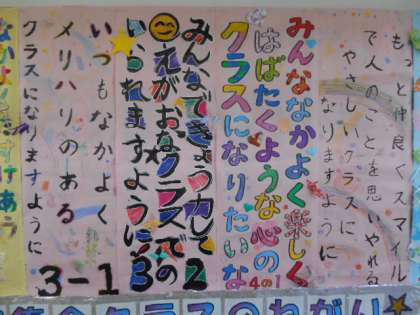 もっと仲良くスマイル
で人のことを思いやれる
やさしいクラスに
なりますように
みんななかよく楽しく
はばたくような心の
クラスになりたいな
4の1
みんなできょう力して
えがおなクラスで
いられますように
2の3
いつもなかよく
メリハリのある
クラスになりますように
3-1
なかよく すけあう
クラスのねがい